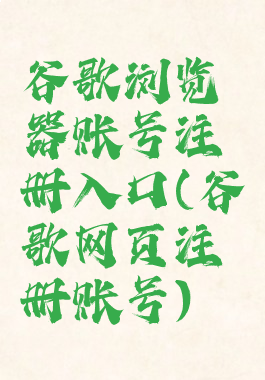 谷歌浏览
器账号注
册入口(谷
歌网页注
册账号)